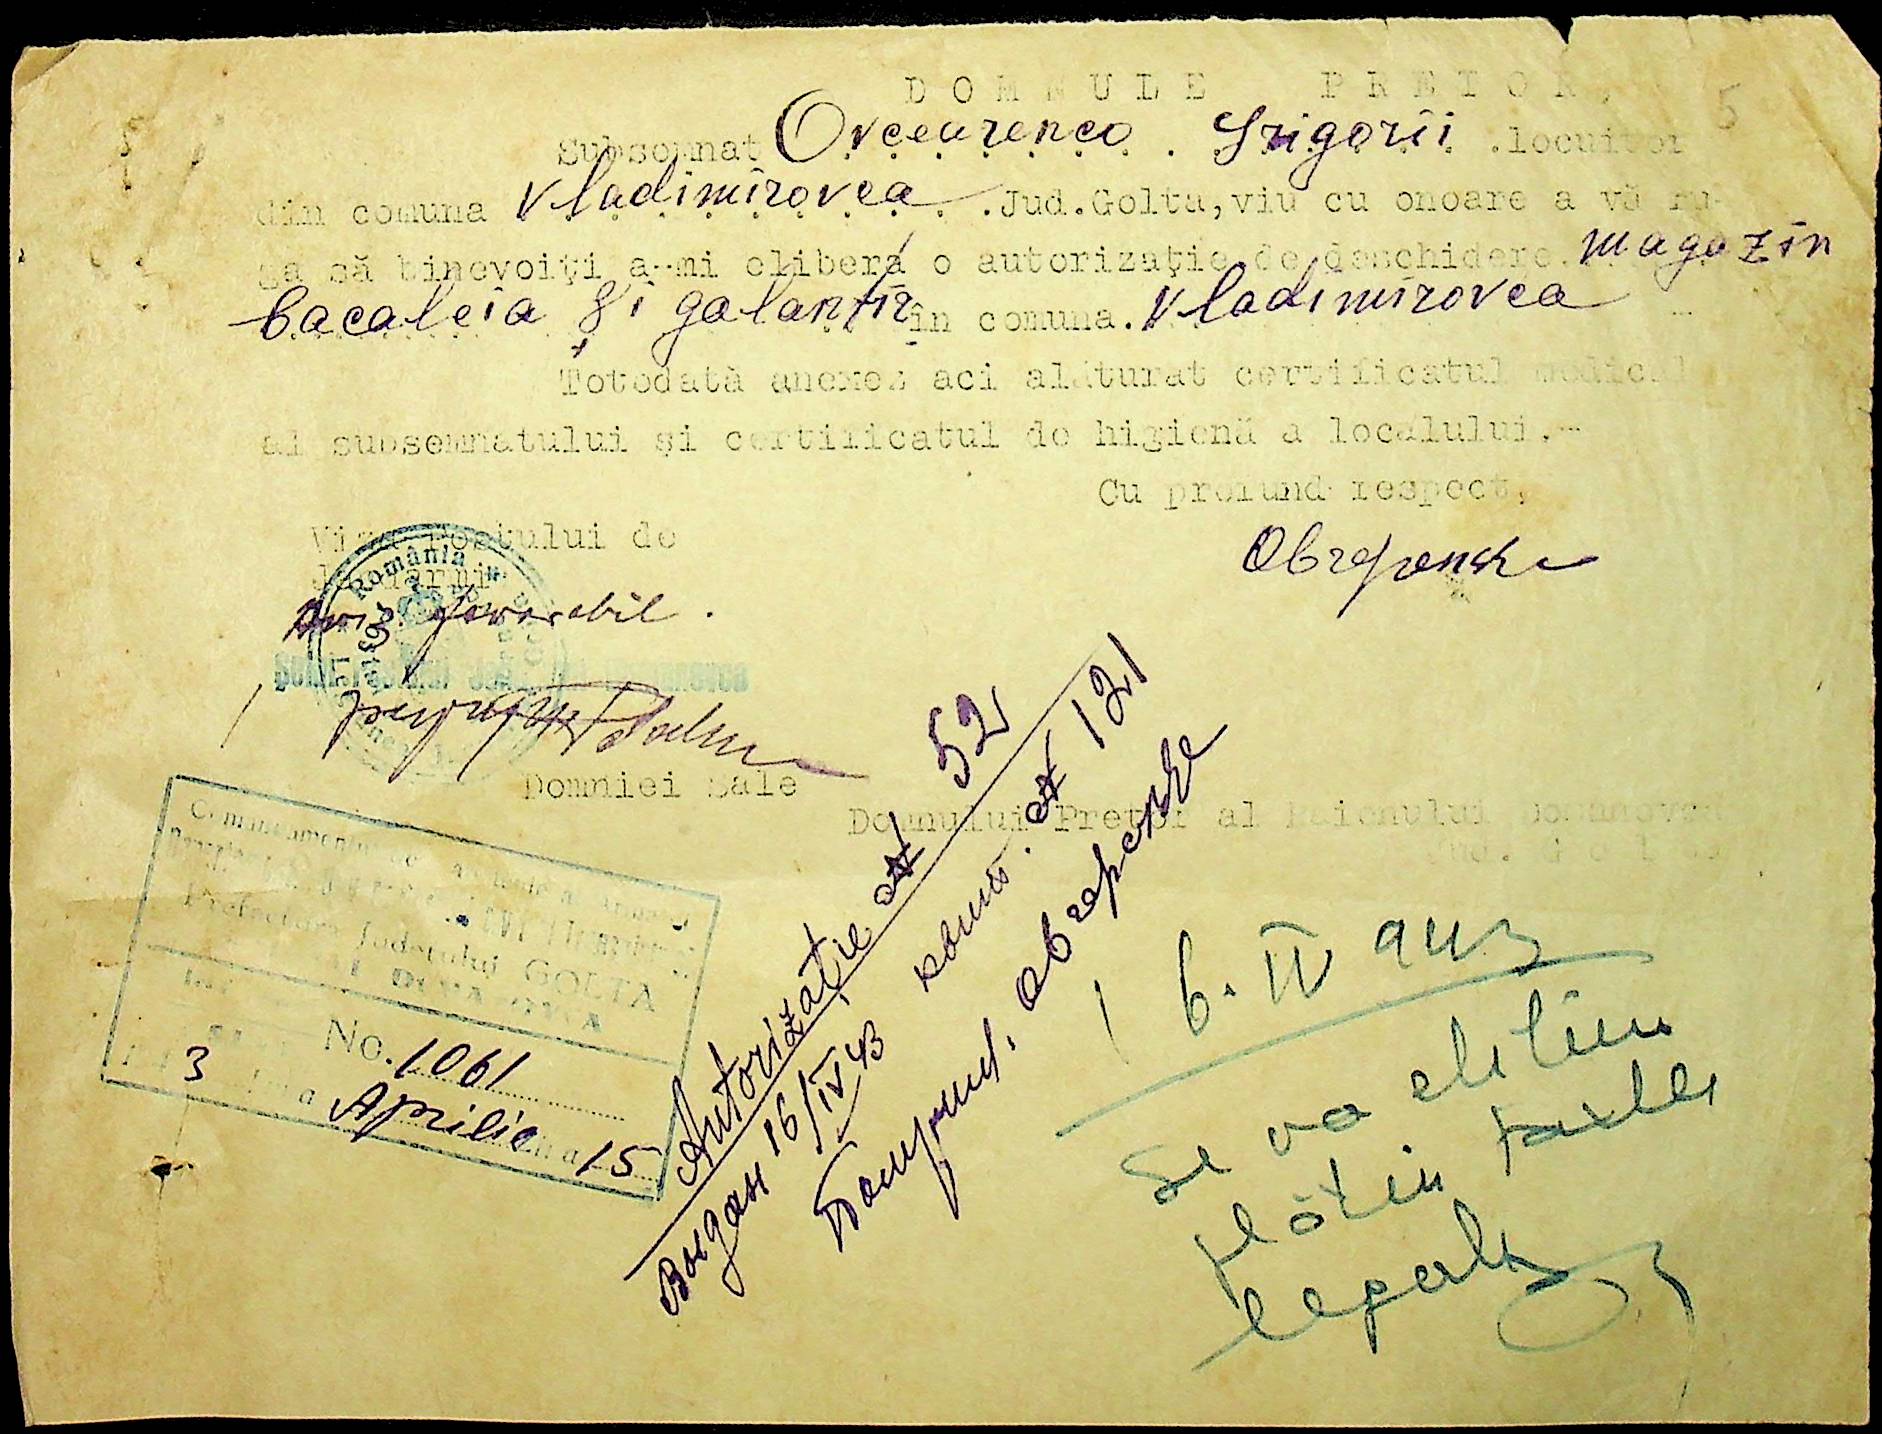 5
DOMNULE PRETOR,
Subsemnat Ovcearenco Grigorii locuitor
din comuna Vladimirovca Jud. Golta, viu cu onoare a vă ru-
ga să binevoiți a-mi eliberá o autorizație de deschidere magazin
bacaleia și galantir în comuna. Vladimirovca
Totodată anexez aci alăturat certificatul medical
al subsemnatului și certificatul de higienă a localului.-
Cu profund respect,
Viza Postului de
Jandarmi
România
Aviz favorabil.
Domniei Sale
Domnului Pretor al Raionului Domanovca
Jud. Golta
Prefectura Județului GOLTA
No. 1061
3
Aprilie 15
Autorizație № 52
Выдан 16/IV 43 квит. № 121
Получил. Овчаренко
16. IV 943
Se va elibera
plăti taxele
legale